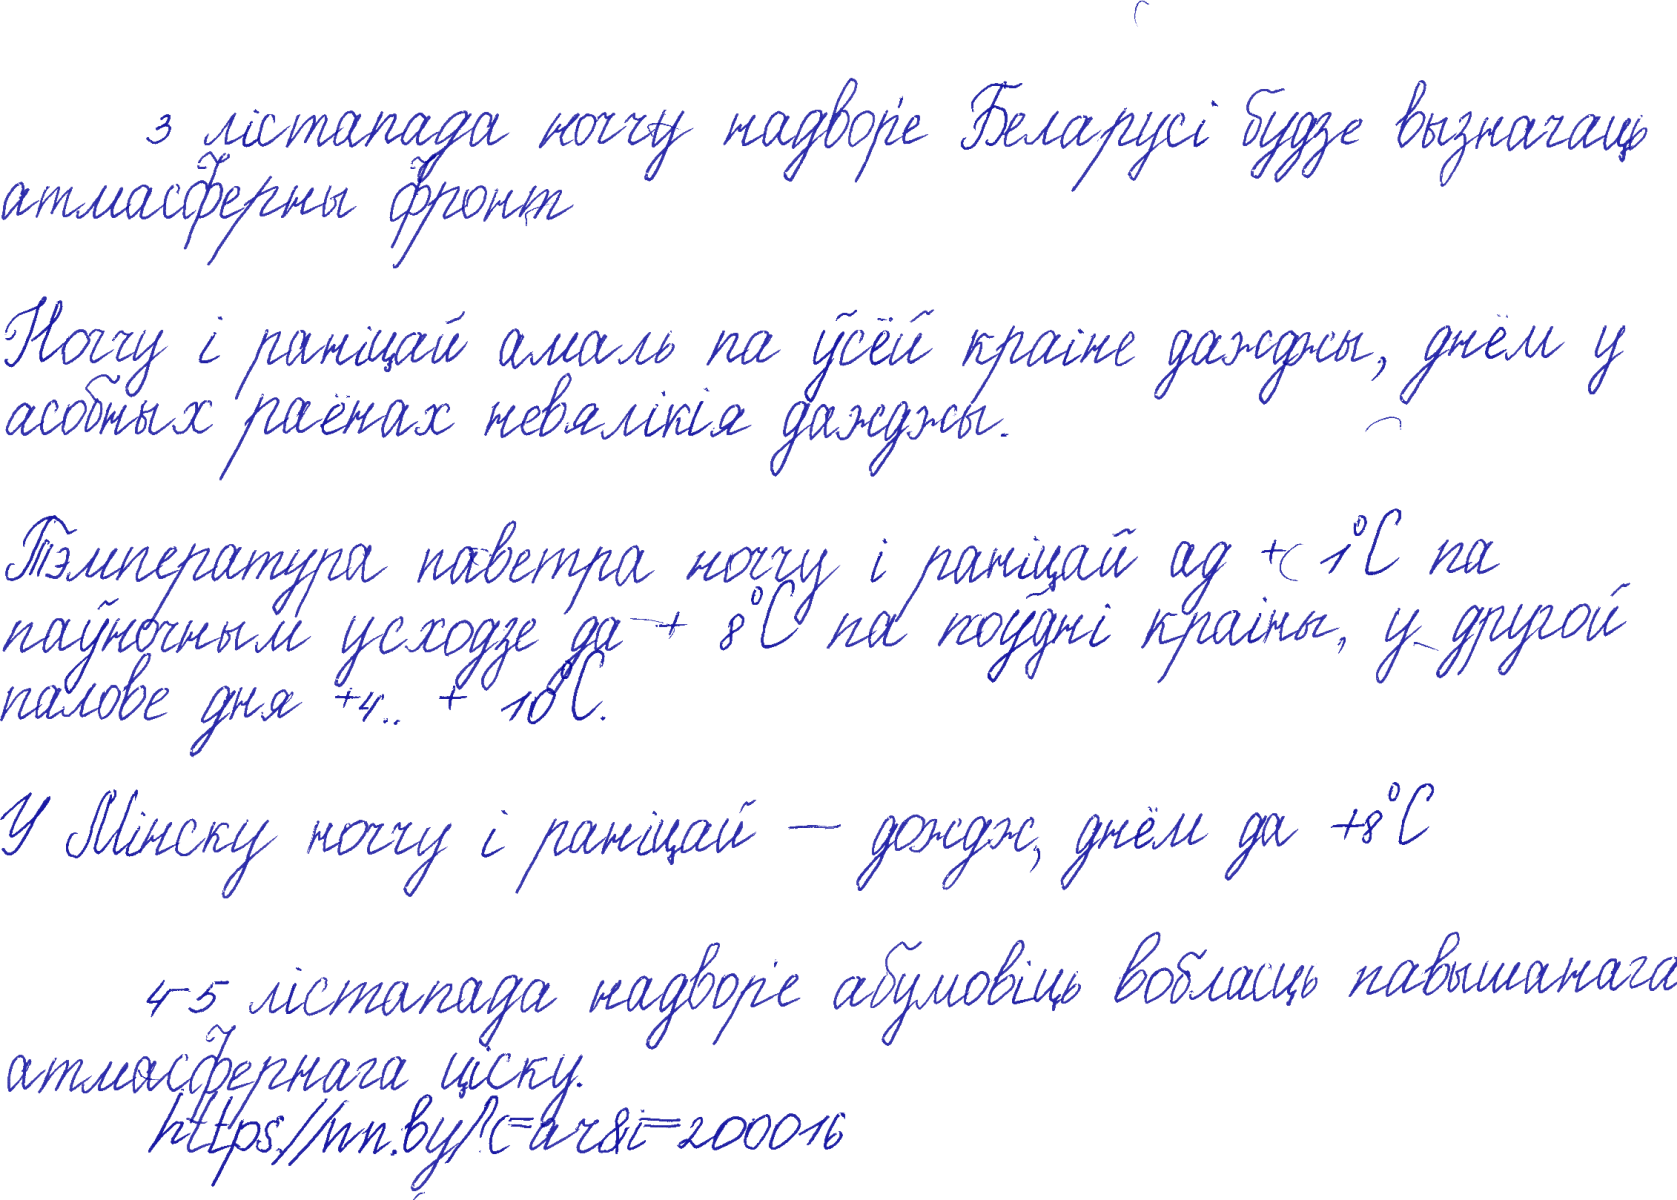 3 лістапада ноччу надвор'е Беларусі будзе вызначаць
атмасферны фронт
Ноччу і раніцай амаль па ўсёй краіне дажджы, днём у
асобных раёнах невялікія дажджы.
Тэмпература паветра ноччу і раніцай ад + 1°С па
паўночным усходзе да + 8°С па поўдні краіны, у другой
палове дня +4.. + 10°С.
У Мінску ноччу і раніцай — дождж, днём да +8°С
4-5 лістапада надвор'е абумовіць вобласць павышанага
атмасфернага ціску.
https://nn.by/?c=ar&i=200016